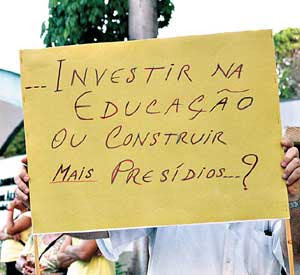 ... INVESTIR NA
EDUCAÇÃO
OU CONSTRUIR
MAIS PRESÍDIOS...?